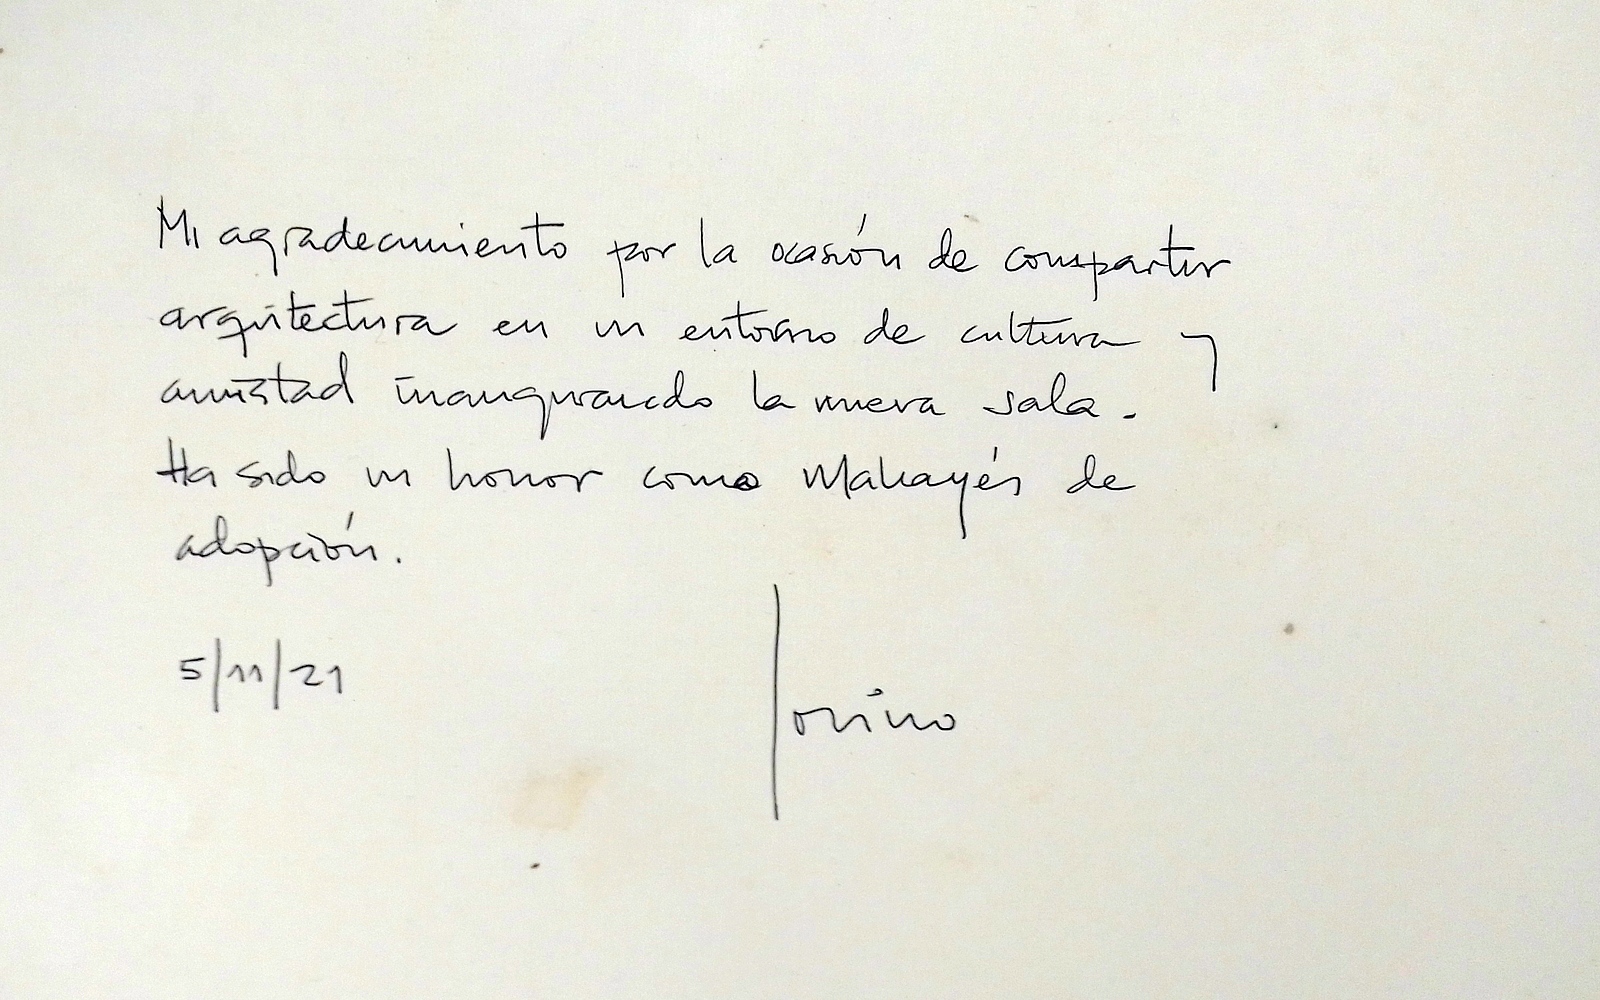 Mi agradecimiento por la ocasión de compartir
arquitectura en un entorno de cultura y
amistad inaugurando la nueva sala.
Ha sido un honor como de
adopción.
5/11/21